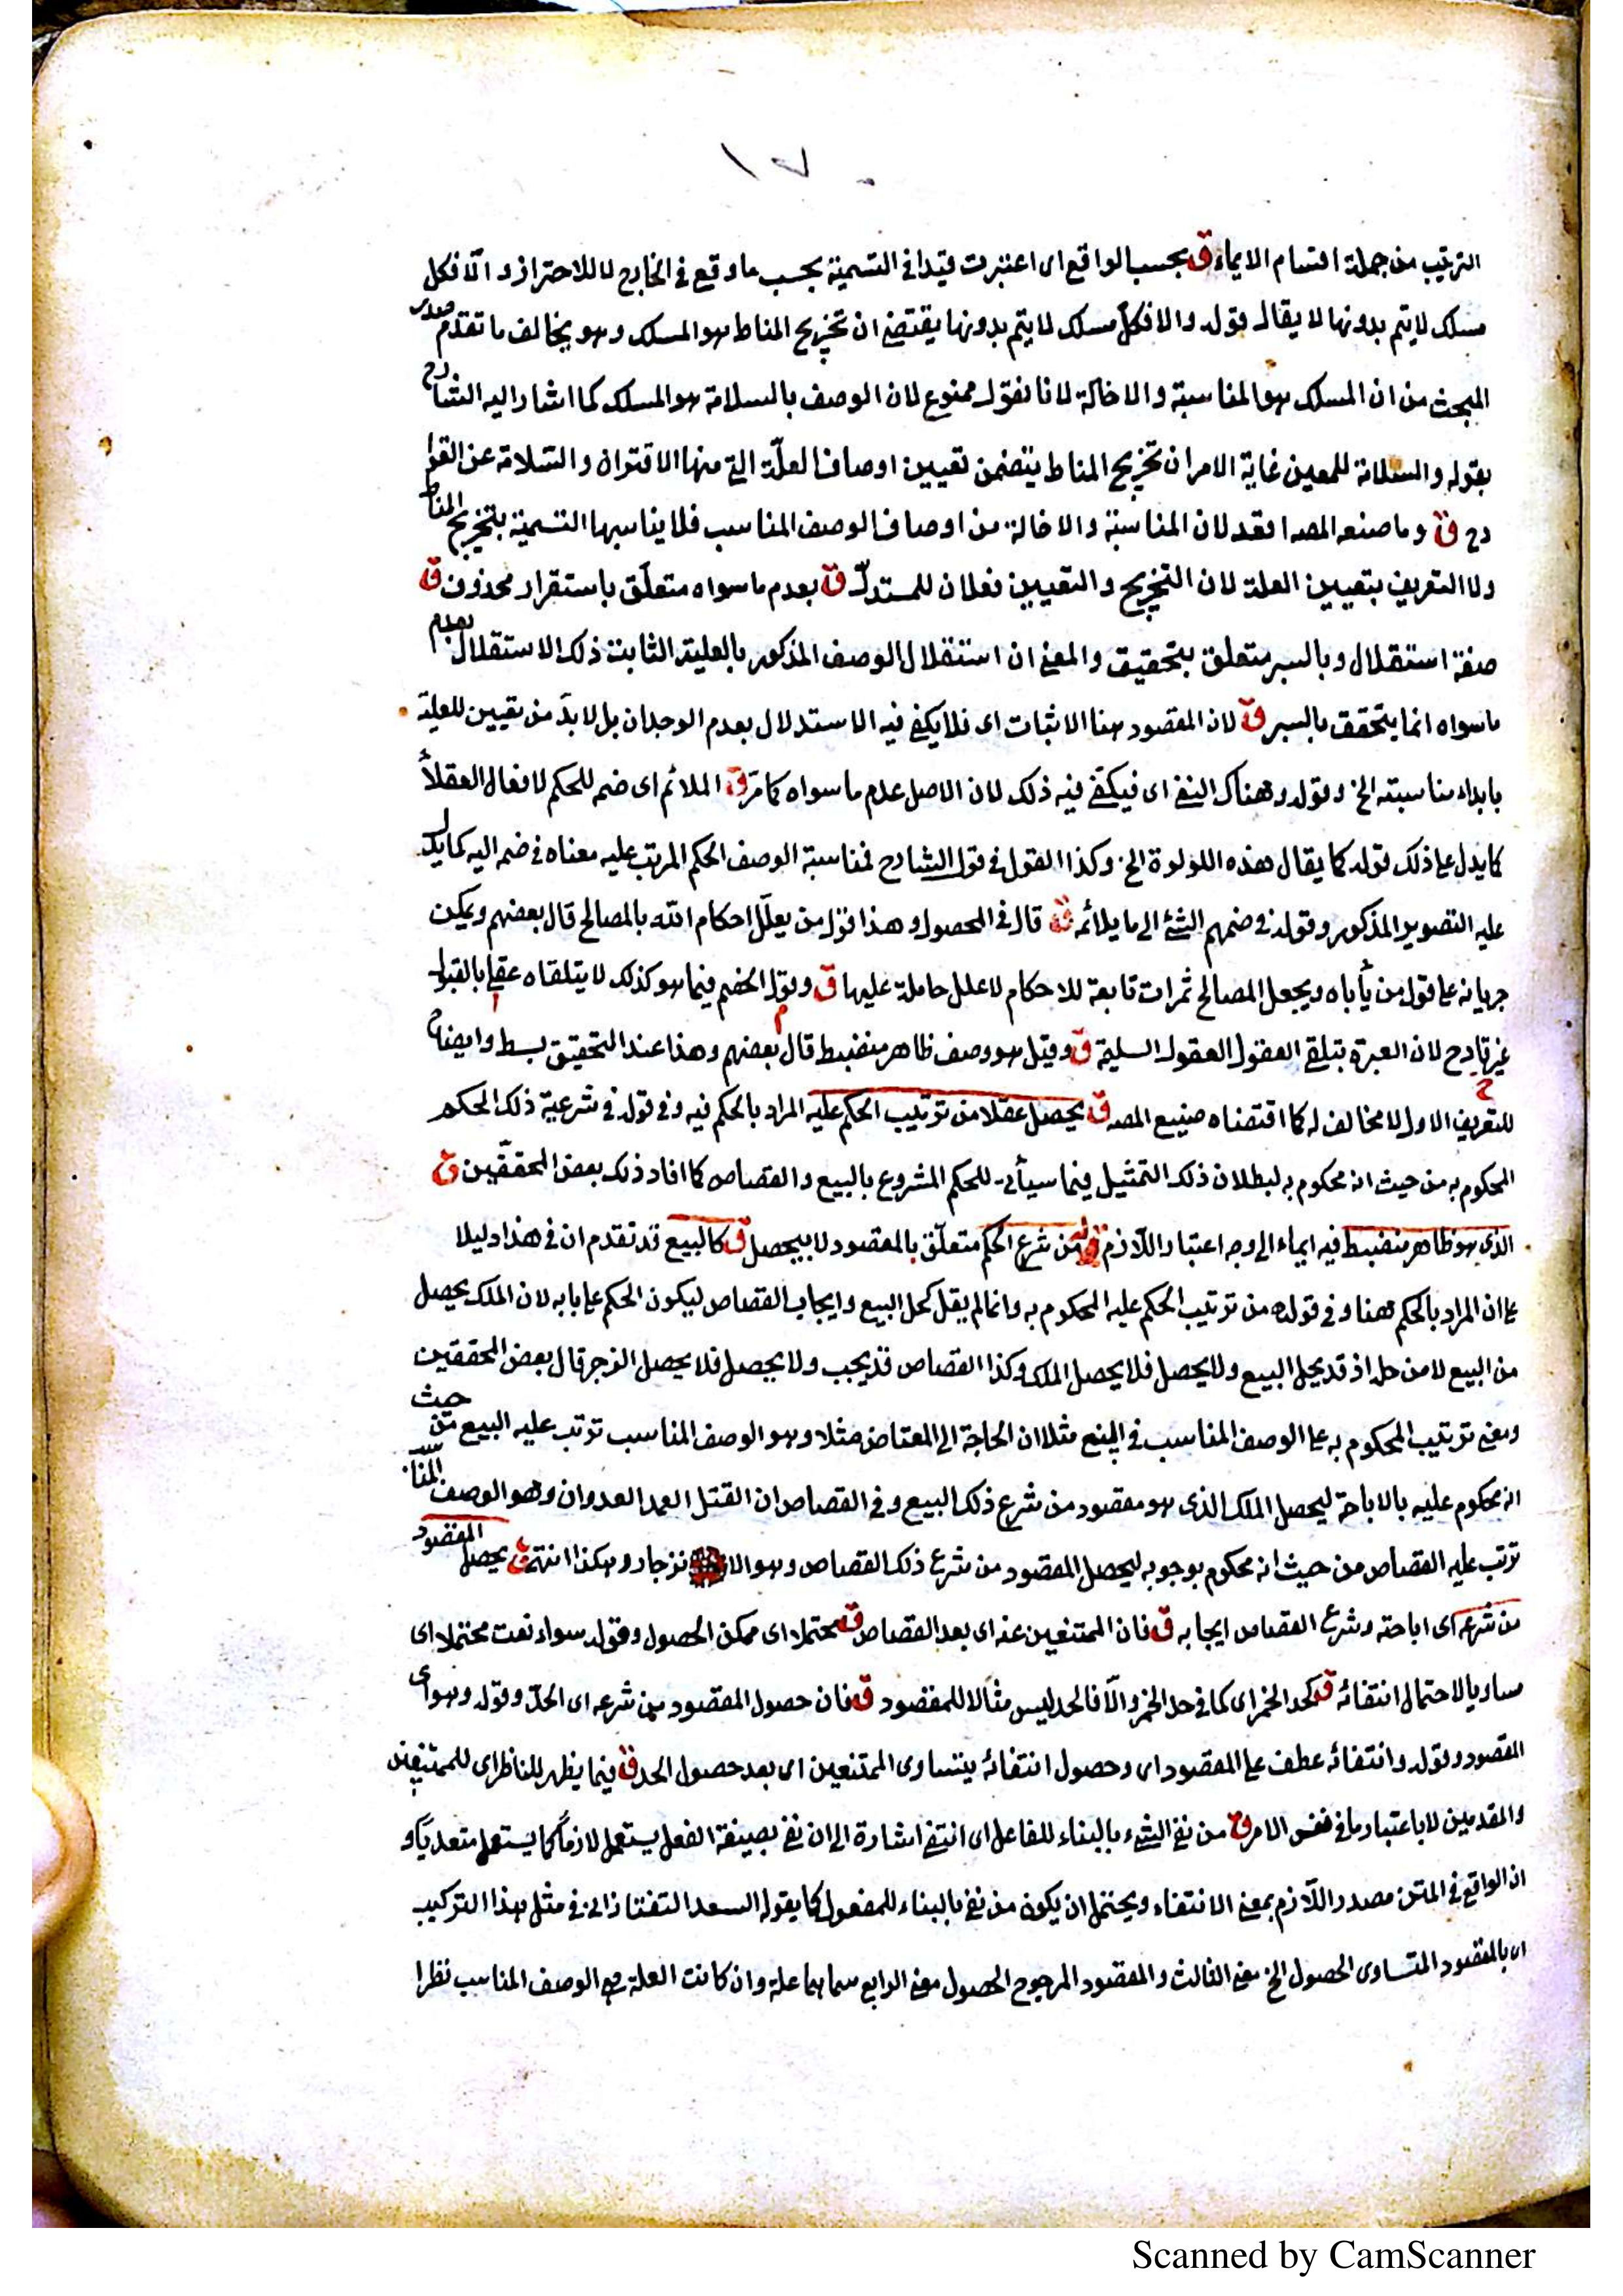 ١٧
الترتيب من جملة اقسام الايماء ق بحسب الواقع اى اعتبرت قيدا فى التسمية بحسب ما وقع فى الخارج لا للاحتراز والّا فكل
مسلك لا يتم بدونها لا يقال قوله والا فكلّ مسلك لا يتم بدونها يقتضى ان تخريج المناط هو المسلك وهو يخالف ما تقدم صدر
المبحث من ان المسلك هو المناسبة والاخالة لانا نقول ممنوع لان الوصف بالسلامة هو المسلك كما اشار اليه الشارح
بقوله والسلامة للمعين غاية الامر ان تخريج المناط يتضمن تعيين اوصاف العلّة التى منها الاقتران والسّلامة عن القوا
دح ق وما صنعه المصـ اقعد لان المناسبة والاخالة من اوصاف الوصف المناسب فلا يناسبها التسمية بتخريج المناط
ولا التعريف بتعيين العلة لان التخريج والتعيين فعلان للمستدلّ ق بعدم ما سواه متعلّق باستقرار محذوف ق
صفة استقلال وبالسبر متعلق بتحقيق والمعنى ان استقلال الوصف المذكور بالعلية الثابت ذلك الاستقلال بعدم
ما سواه انما يتحقق بالسبر ق لان المقصود هنا الاثبات اى فلا يكفى فيه الاستدلال بعدم الوجدان بل لا بدّ من تعيين للعلية
بابداء مناسبته الخ وقوله وهناك النفى اى فيكفى فيه ذلك لان الاصل عدم ما سواه كما مرّ ق الملائم اى ضم للحكم لافعال العقلاء
كما يدل على ذلك قوله كما يقال هذه اللؤلوة الخ وكذا القول فى قول الشارح فمناسبة الوصف الحكم المرتب عليه معناه فى ضم اليه كما يدل
عليه التصوير المذكور وقوله فى ضمهم الشئ الى ما يلائمه ق قال فى المحصول وهذا قول من يعلّل احكام الله بالمصالح قال بعضهم ويمكن
جريانه على قول من يأباه ويجعل المصالح ثمرات تابعة للاحكام لا علل حاملة عليها ق وقول الخصم فيما هو كذلك لا يتلقاه عقلى بالقبول
غير قادح لان العبرة بتلقى العقول العقول السليمة ق وقيل هو وصف ظاهر منضبط قال بعضهم وهذا عند التحقيق بسط وايضاح
للتعريف الاول لا مخالف له كما اقتضاه صنيع المصـ ق يحصل عقلا من ترتيب الحكم عليه المراد بالحكم فيه وفى قوله فى شرعية ذلك الحكم
المحكوم به من حيث انه محكوم به لبطلان ذلك التمثيل فيما سيأتى للحكم المشروع بالبيع والقصاص كما افاد ذلك بعض المحققين ق
الذى هو ظاهر منضبط فيه ايماء الى وجه اعتبار اللّازم قوله من شرع الحكم متعلّق بالمقصود لا بيحصل ق كالبيع قد تقدم ان فى هذا دليلا
على ان المراد بالحكم هنا وفى قوله من ترتيب الحكم عليه المحكوم به وانما لم يقل كحل البيع وايجاب القصاص ليكون الحكم على بابه لان الملك يحصل
من البيع لا من حله اذ قد يحل البيع ولا يحصل فلا يحصل الملك وكذا القصاص قد يجب ولا يحصل فلا يحصل الزجر قال بعض المحققين
ومعنى ترتيب المحكوم به على الوصف المناسب فى البيع مثلا ان الحاجة الى المعتاض مثلا وهو الوصف المناسب ترتب عليه البيع من حيث
انه محكوم عليه بالاباحة ليحصل الملك الذى هو مقصود من شرع ذلك البيع وفى القصاص ان القتل العمد العدوان وهو الوصف المناسب
ترتب عليه القصاص من حيث انه محكوم بوجوبه ليحصل المقصود من شرع ذلك القصاص وهو الا نزجار وهكذا انتهى ق يحصل المقصود
من شرعه اى اباحته وشرع القصاص ايجابه ق فان الممتنعين عنه اى بعد القصاص ق محتملا اى ممكن الحصول وقوله سواء نعت محتملا اى
مساويا لاحتمال انتفائه ق كحد الخمر اى كما فى حد الخمر والّا فالحد ليس مثالا للمقصود ق فان حصول المقصود من شرعه اى الحدّ وقوله وهو اى
المقصود وقوله وانتفائه عطف على المقصود اى وحصول انتفائه يتساوى الممتنعين اى بعد حصول الحد ق فيما يظهر للناظر اى للممتنعين
والمقدمين لا باعتبار ما فى نفس الامر ق من نفى الشىء بالبناء للفاعل اى انتفى اشارة الى ان نفى بصيغة الفعل يستعمل لازما كما يستعمل متعديا و
ان الواقع فى المتن مصدر اللّازم بمعنى الانتفاء ويحتمل ان يكون من نفى بالبناء للمفعول كما يقوله السعد التفتازانى فى مثل هذا التركيب
اى بالمقصود المتساوى الحصول الخ معنى الثالث والمقصود المرجوح الحصول معنى الرابع سماهما علة وان كانت العلة هى الوصف المناسب نظرا
Scanned by CamScanner